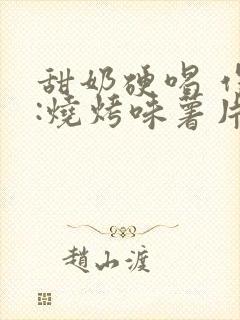 甜奶硬唱
:燒烤味薯片
趙山渡